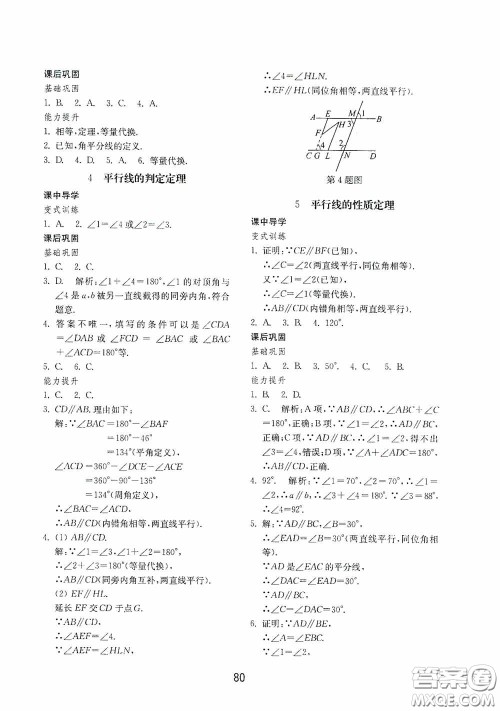 课后巩固
基础巩固
1. B. 2. A. 3. C. 4. A.
能力提升
1. 相等,定理,等量代换.
2. 已知,角平分线的定义.
3. D. 4. D. 5. A. 6. 等量代换.
4 平行线的判定定理
课中导学
变式训练
1. A. 2. ∠1=∠4或∠2=∠3.
课后巩固
基础巩固
1. C. 2. C.
3. D. 解析:∠1+∠4=180°,∠1的对顶角与
∠4是a,b被另一直线截得的同旁内角,符合
题意.
4. 答案不唯一,填写的条件可以是∠CDA
=∠DAB或∠FCD=∠BAC或∠BAC
+∠ACD=180°等.
5. C. 6. C.
能力提升
1. C. 2. C.
3. CD∥AB.理由如下:
解:∵∠BAC=180°-∠BAF
=180°-46°
=134°(平角定义),
∠ACD=360°-∠DCE-∠ACE
=360°-90°-136°
=134°(周角定义),
∴∠BAC=∠ACD,
∴AB∥CD(内错角相等,两直线平行).
4. (1) AB∥CD.
解:∵∠1=∠3,∠2+∠3=180°,
∴∠2+∠1=180°,
∴AB∥CD(同旁内角互补,两直线平行).
(2) EF∥HL.
延长EF交CD于点G.
∵AB∥CD,
∴∠AEF=∠4.
∵∠AEF=∠HLN,
∴∠4=∠HLN.
∴EF∥HL(同位角相等,两直线平行).
A E M 1 B
F H 3
4 2
C G L N D
第4题图
5 平行线的性质定理
课中导学
变式训练
1. 证明:∵CE∥BF(已知),
∴∠C=∠2(两直线平行,同位角相等).
又∵∠1=∠2(已知),
∴∠C=∠1(等量代换).
∴AB∥CD(内错角相等,两直线平行).
2. A. 3. A. 4. 120°.
课后巩固
基础巩固
1. A. 2. B. 3. 50°. 4. C. 5. B.
能力提升
1. B. 2. D.
3. C. 解析:A项,∵AB∥CD,∴∠ABC+∠C
=180°,正确;B项,∵AD∥BC,∴∠1=∠2,
正确;C项,∵AD∥BC,∴∠1=∠2,得不出
∠3=∠4,错误;D项,∵∠A+∠ADC=180°,
∴AB∥CD,正确.
4. 92°. 解析:∵∠1=70°,∠2=70°,∴∠1=
∠2,∴a∥b,∴∠3+∠4=180°.∵∠3=88°,
∴∠4=92°.
5. 解:∵AD∥BC,∠B=30°,
∴∠EAD=∠B=30°(两直线平行,同位角相
等).
∵AD是∠EAC的平分线,
∴∠DAC=∠EAD=30°.
∵AD∥BC,
∴∠C=∠DAC=30°.
6. 证明:∵AD∥BE,
∴∠A=∠EBC.
∵∠1=∠2,
80